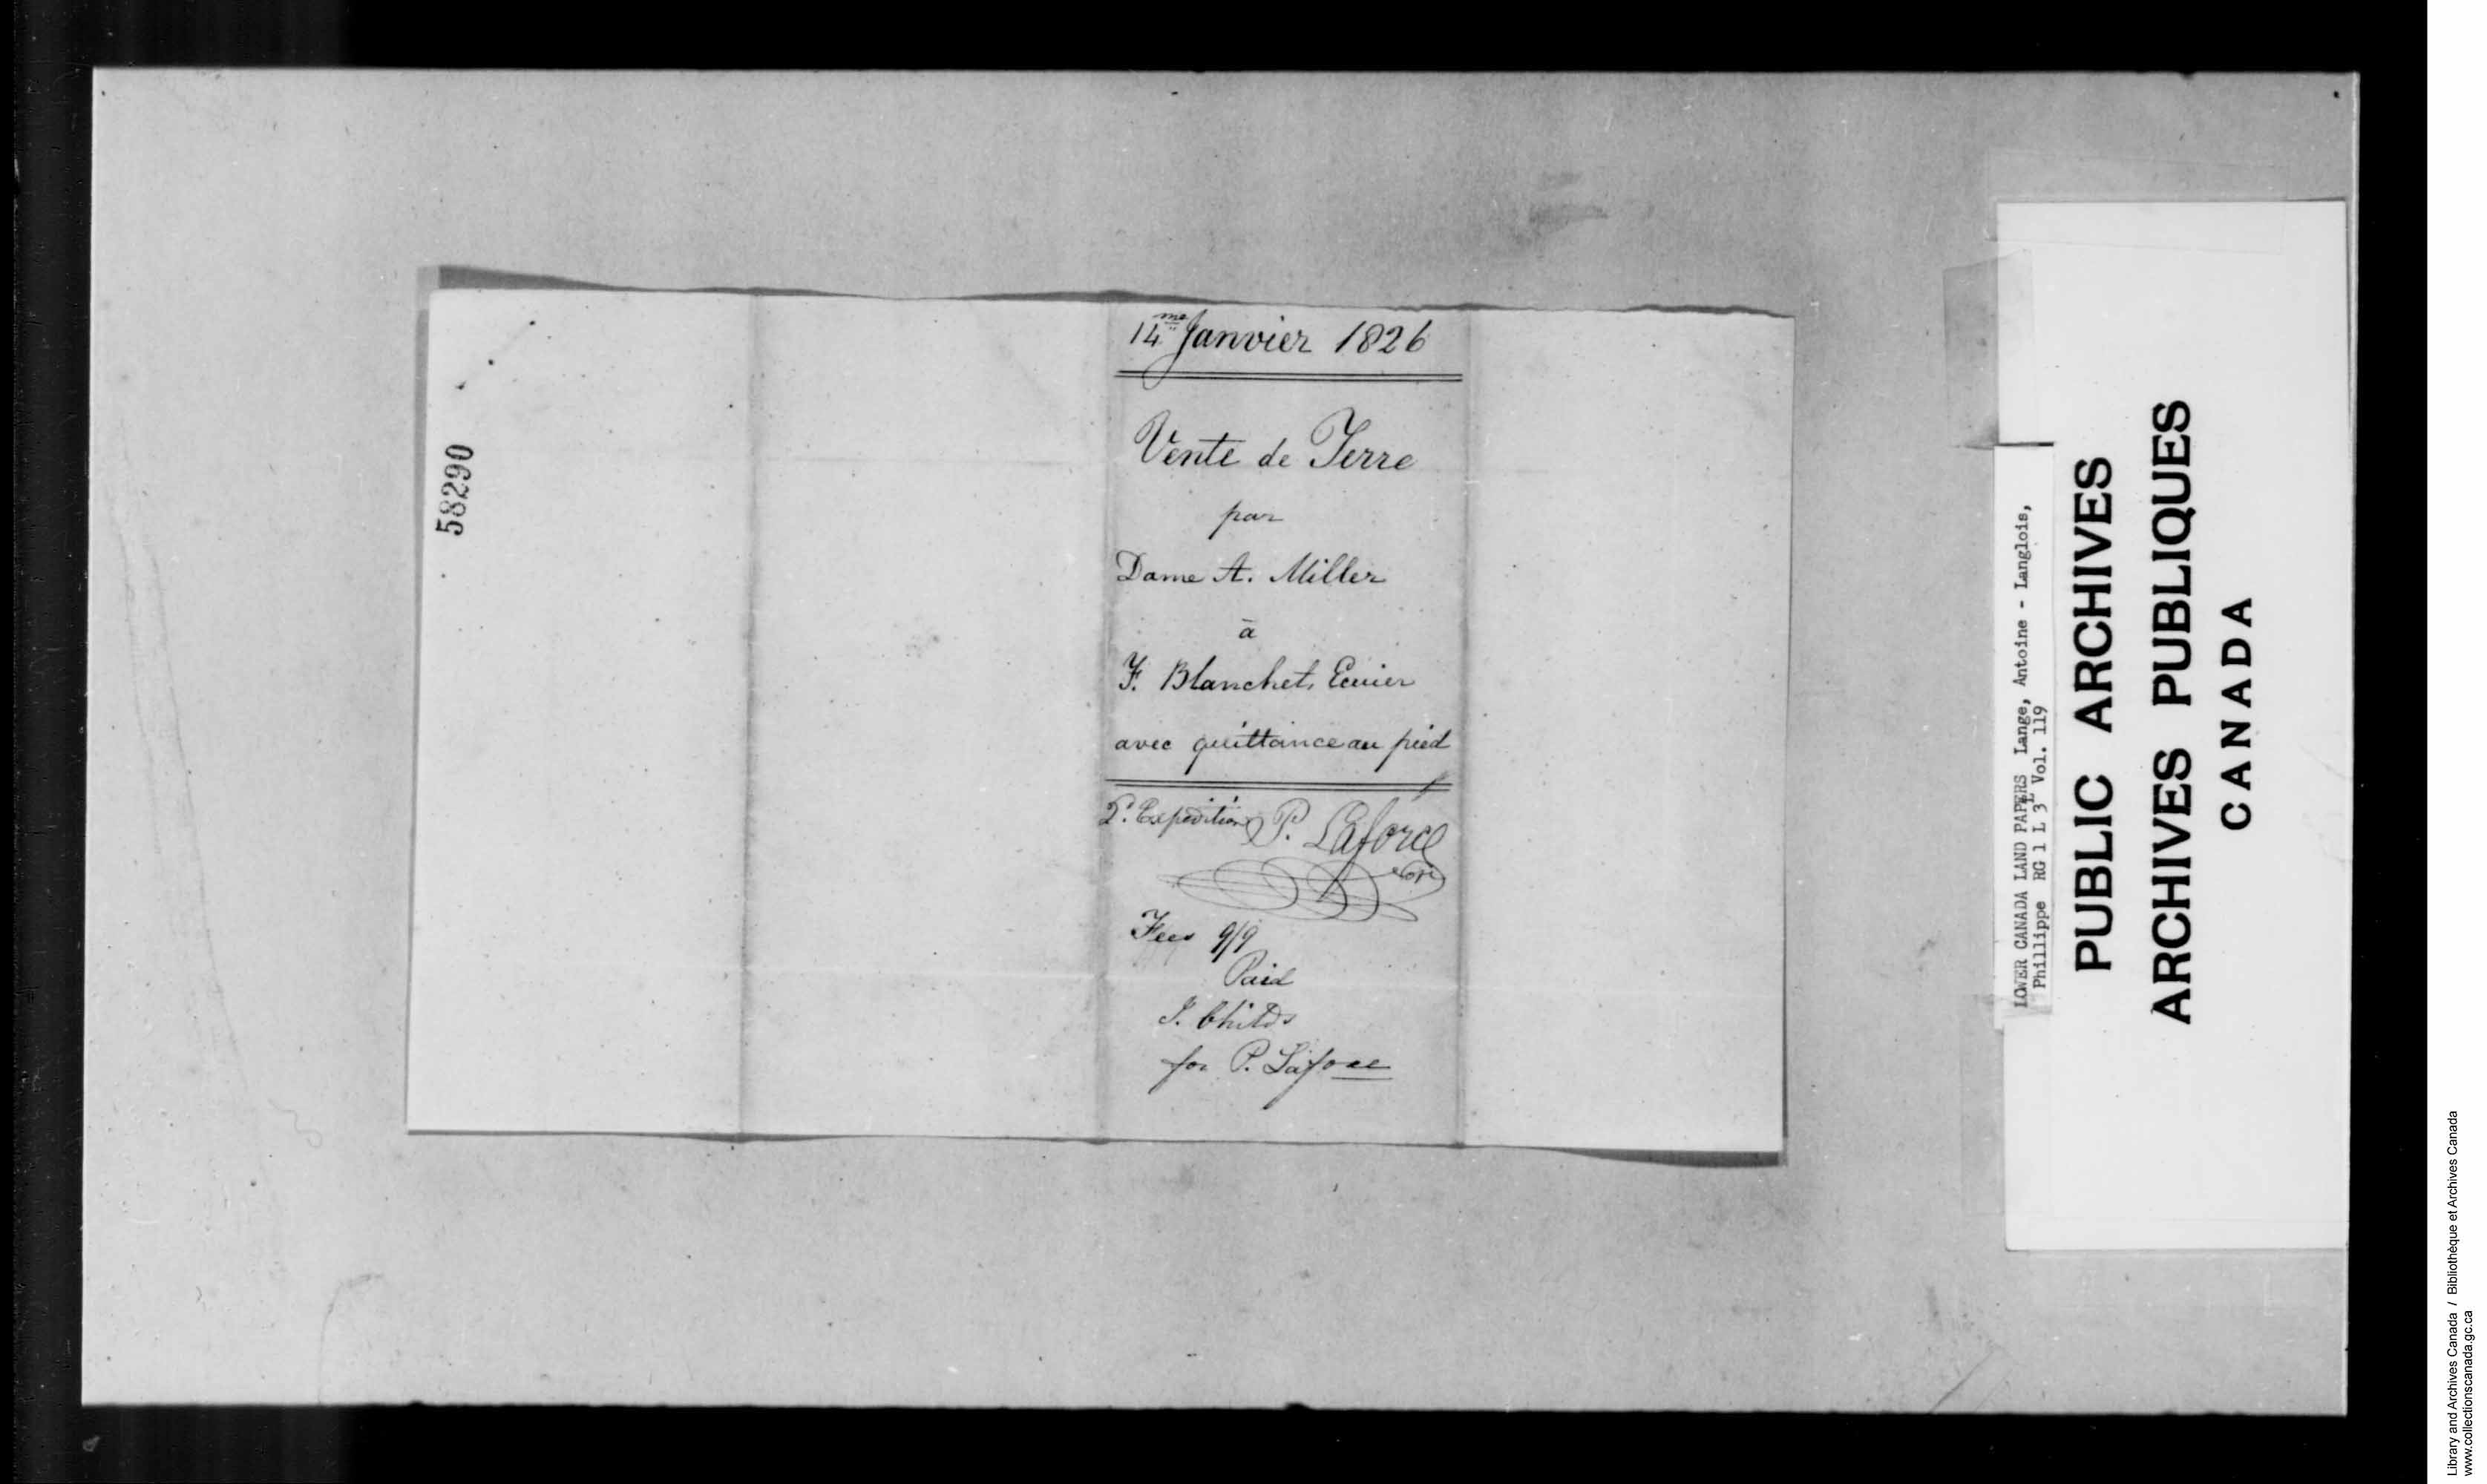 58290
14me Janvier 1826
Vente de Terre
par
Dame A. Miller
à
F. Blanchet, Ecuier
avec quittance au pied
2e. Expedition P. Laforce
Nore
Fees 9/9
Paid
J. Childs
for P. Laforce
LOWER CANADA LAND PAPERS Lange, Antoine - Langlois,
Phillippe RG 1 L 3 L Vol. 119
PUBLIC ARCHIVES
ARCHIVES PUBLIQUES
CANADA
Library and Archives Canada / Bibliothèque et Archives Canada
www.collectionscanada.gc.ca